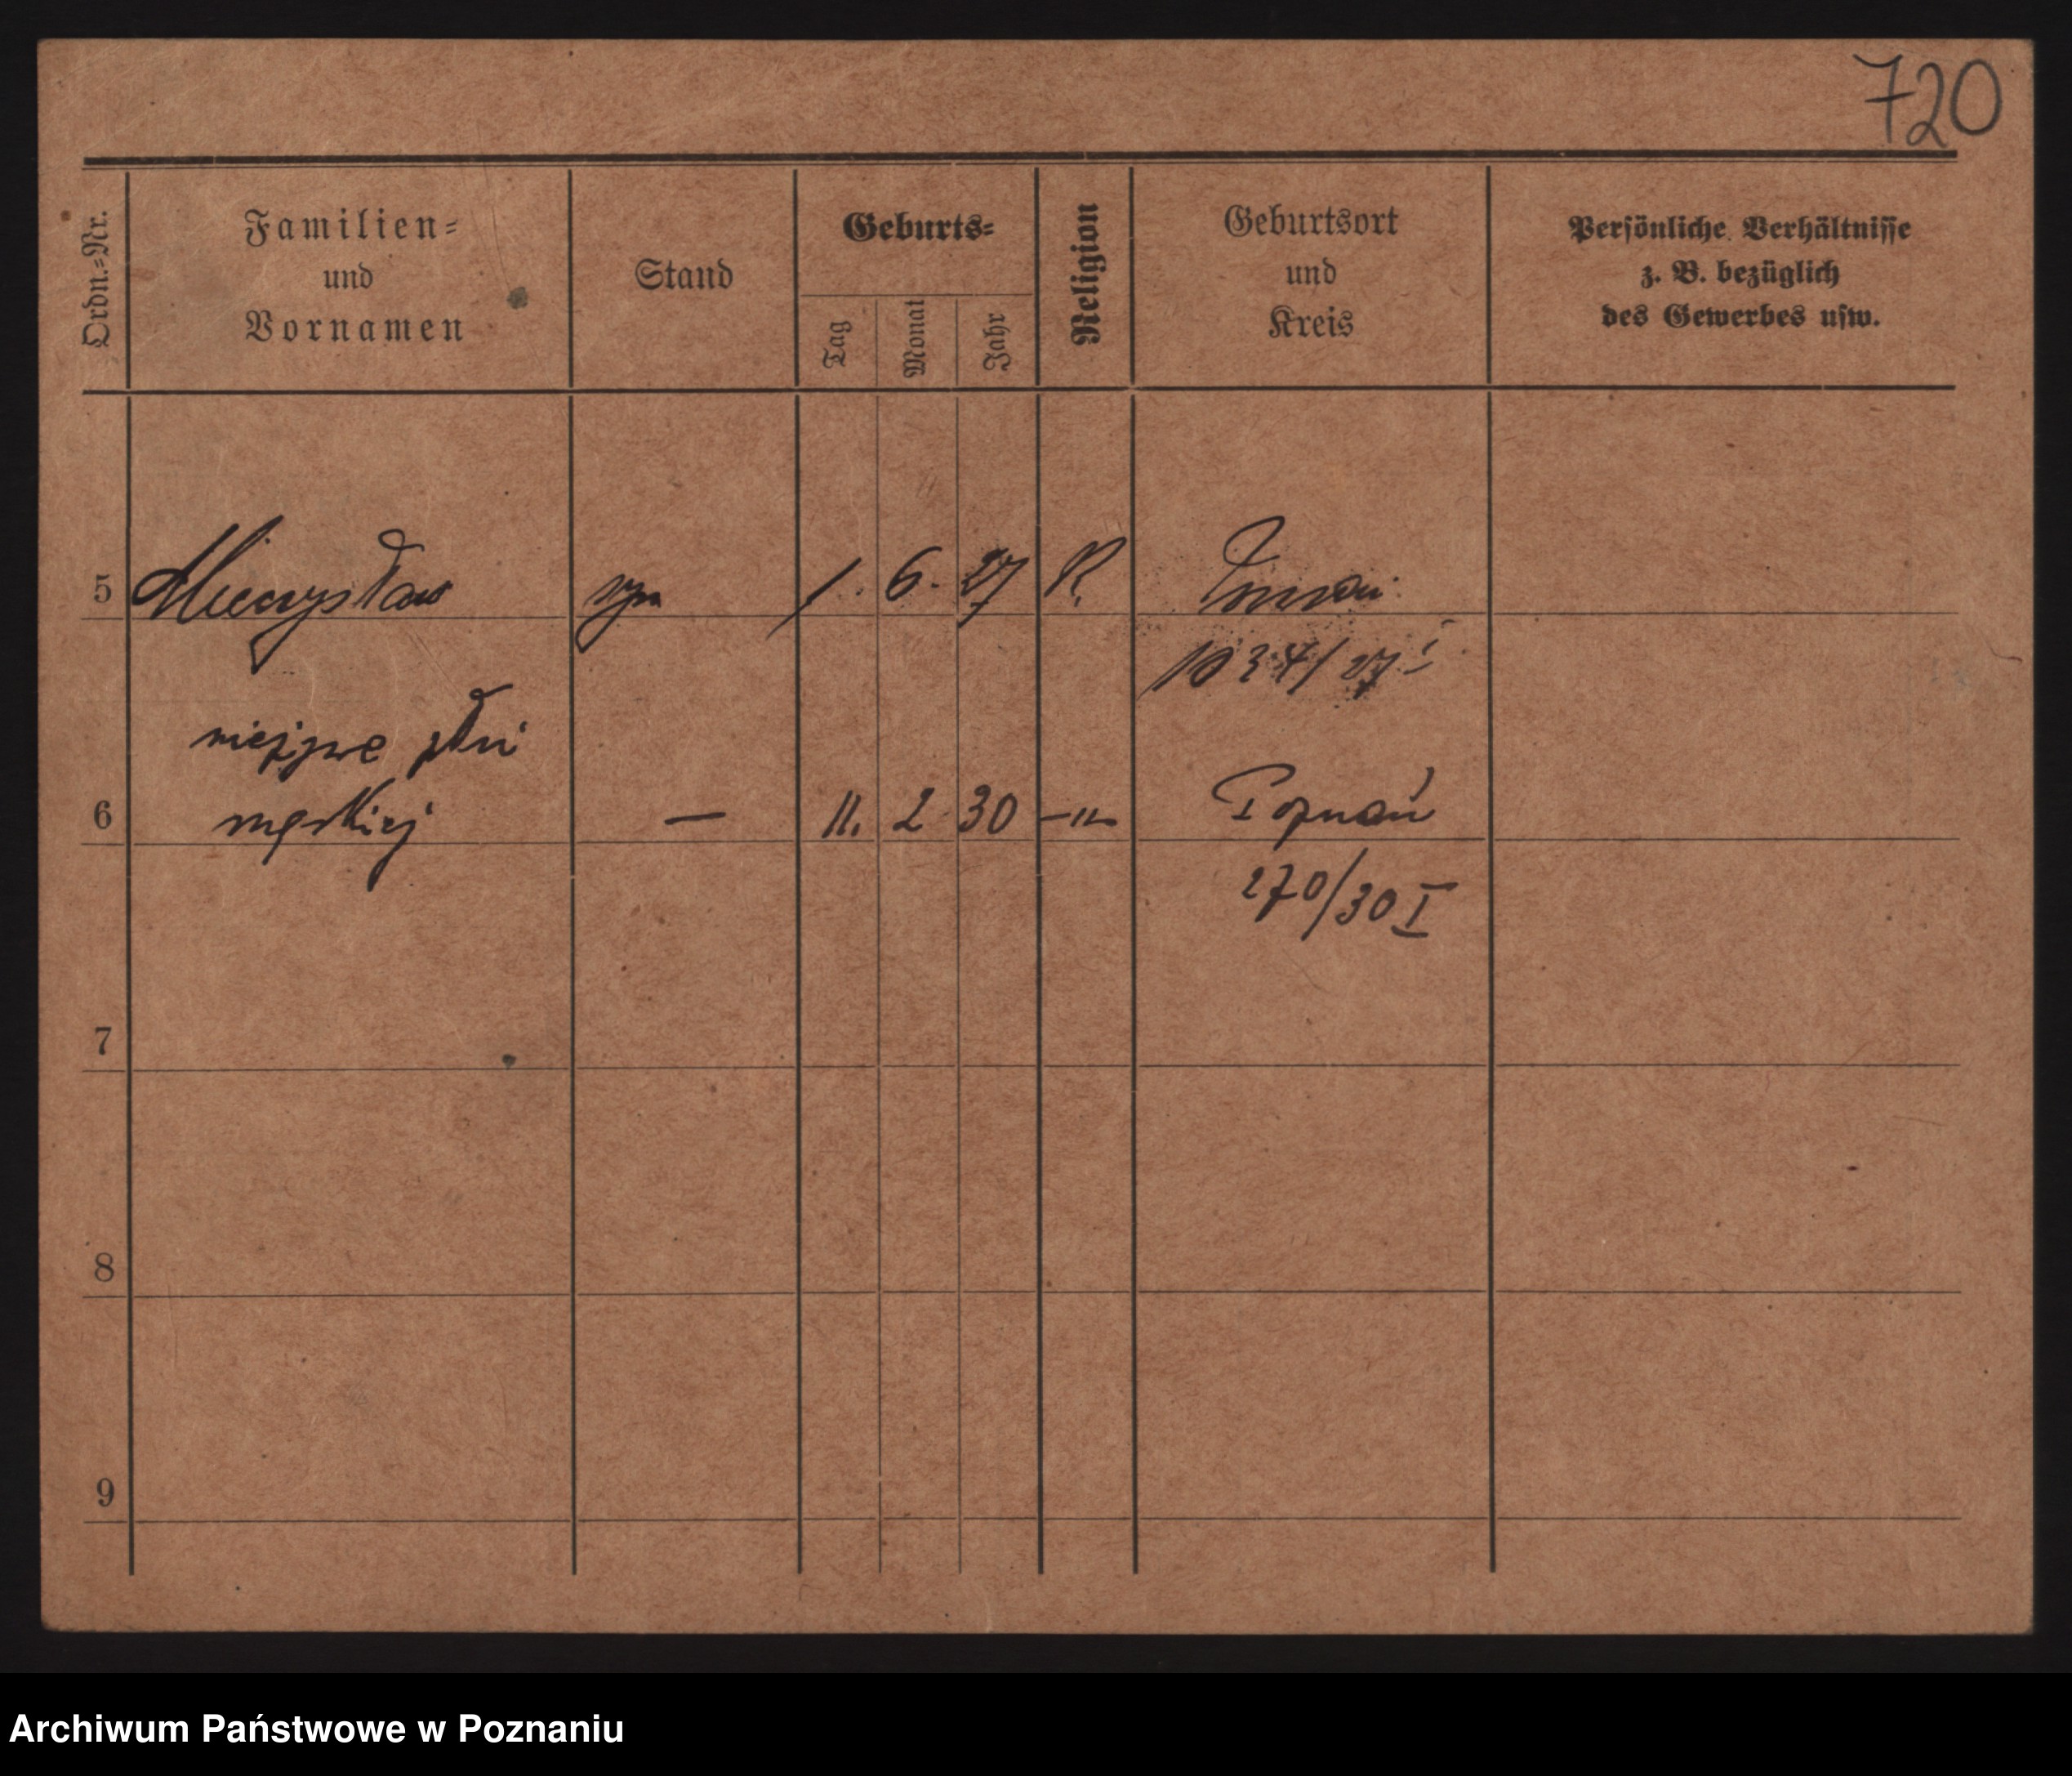 720
Ordn.=Nr.
Familien=
und
Vornamen
Stand
Geburts=
Tag
Monat
Jahr
Religion
Geburtsort
und
Kreis
Persönliche Verhältnisse
z. B. bezüglich
des Gewerbes usw.
5 Mieczysław syn 1. 6. 27 K.
1034/27 I
płci
6 męskiej — 11. 2 30 -"- Poznań
270/30 I
7
8
9
Archiwum Państwowe w Poznaniu